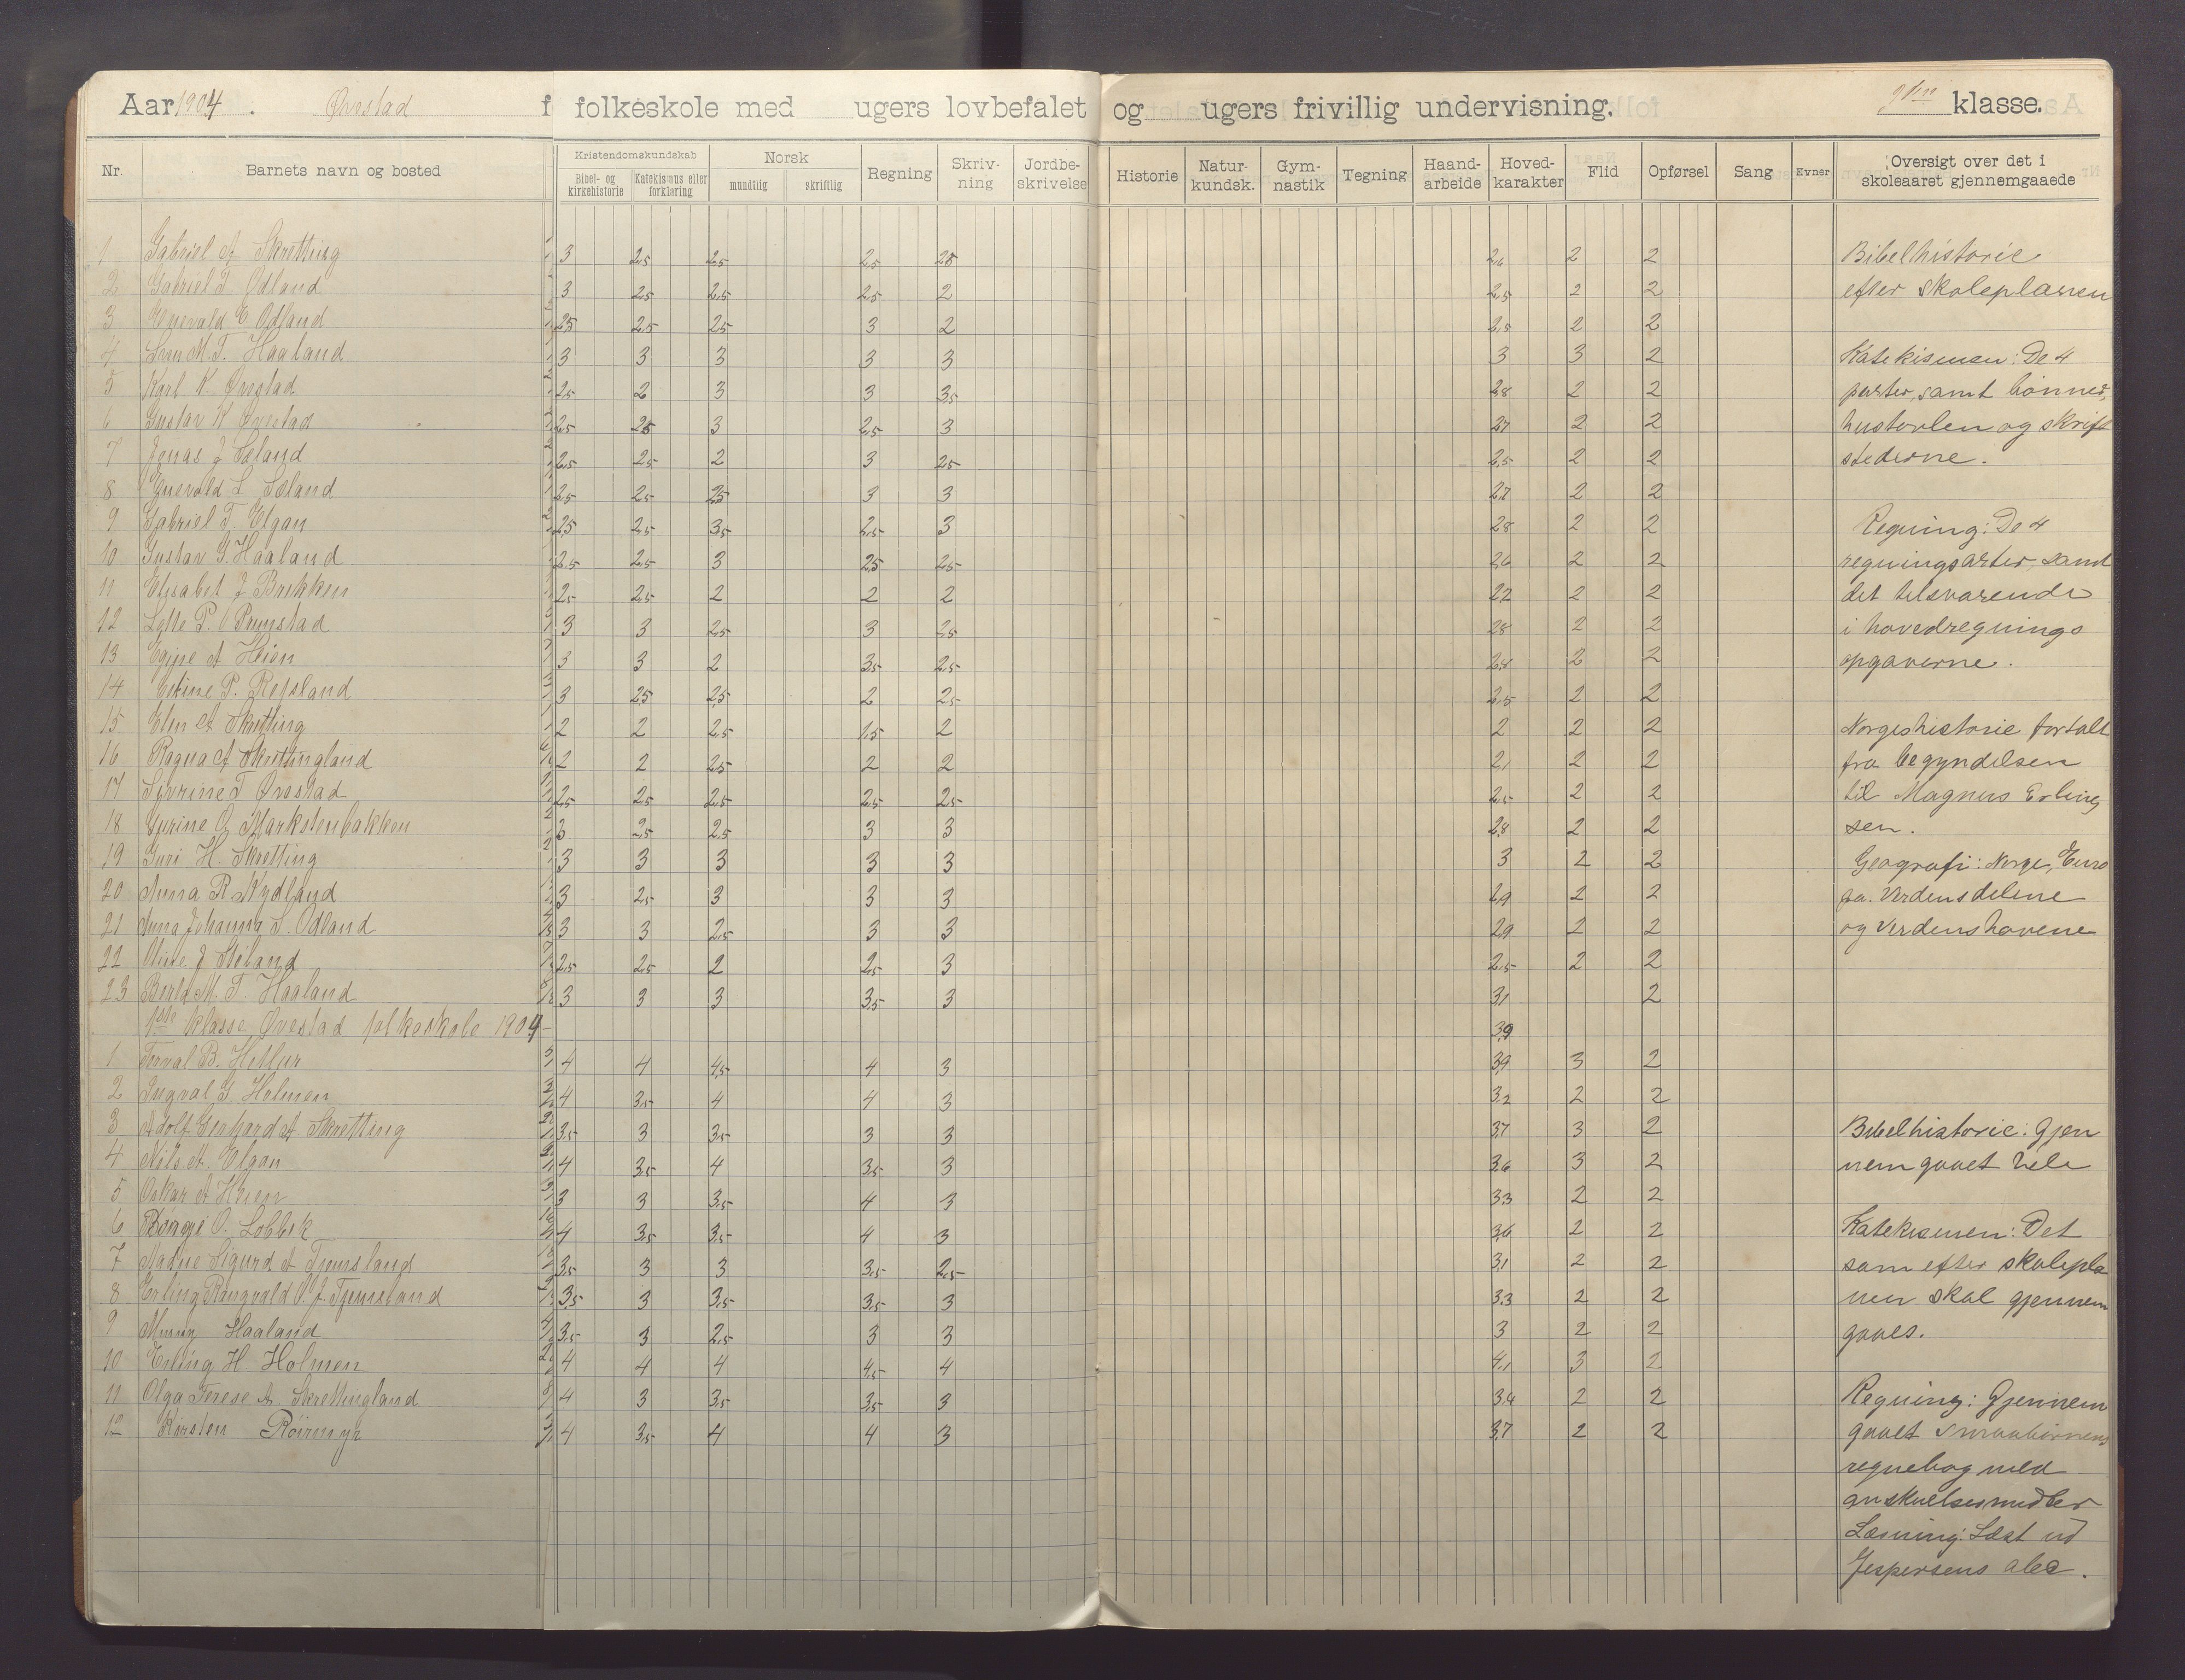 Aar 1904. Øvestad f folkeskole med ugers lovbefalet og ugers frivillig undervisning. klasse.
Nr. Barnets navn og bosted Kristendomskundskab Bibel- og kirkehistorie Katekismus eller forklaring Norsk mundtlig skriftlig Regning Skrivning Jordbeskrivelse Historie Naturkundsk. Gymnastik Tegning Haandarbeide Hovedkarakter Flid Opførsel Sang Evner Oversigt over det i skoleaaret gjennemgaaede
1 Gabriel A Skretting 3 2,5 2,5 2,5 2,5 2,6 2 2 Bibelhistorie
2 Gabriel T Ødland 3 2,5 2,5 2,5 2 2,5 2 2 efter skoleplanen
3 Enevald E Odland 2,5 2,5 2,5 3 2 2,5 2 2
4 M. T. Haaland 3 3 3 3 3 3 3 2 Katekismen: De 4
5 Karl K Øvestad 2,5 2 3 3 3,5 2,8 2 2 parter, samt bønner,
6 Gustav K Øvestad 2,5 2,5 3 2,5 3 2,7 2 2 hustavlen og skrift
7 Jonas J Sæland 2,5 2,5 2 3 2,5 2,5 2 2 stederne.
8 Enevald L Sæland 2,5 2,5 2,5 3 3 2,7 2 2
9 Gabriel T. Elgan 2,5 2,5 3,5 2,5 3 2,8 2 2 Regning: De 4
10 Gustav G. Haaland 2,5 2,5 3 2,5 2,5 2,6 2 2 regningsarter, samt
11 Elisabet J Brekken 2,5 2,5 2 2 2 2,2 2 2 det tilsvarende
12 P. 3 3 2,5 3 2,5 2,8 2 2 i hovedregnings
13 A Heien 3 3 2 3,5 2,5 2,8 2 2 opgaverne.
14 P. Refsland 3 2,5 2,5 2 2,5 2,5 2 2
15 Elen A Skretting 2 2 2,5 1,5 2 2 2 2 Norgeshistorie fortalt
16 Ragna A Skrettingland 2 2 2,5 2 2 2,1 2 2 fra begyndelsen
17 Severine T Øvestad 2,5 2,5 2,5 2,5 2,5 2,5 2 2 til Magnus Erling
18 Gurine O Markstenbakken 3 2,5 2,5 3 3 2,8 2 2 sen.
19 Guri H. Skretting 3 3 3 3 3 3 2 2 Geografi: Norge, Euro
20 Anna R Nydland 3 2,5 3 3 3 2,9 2 2 pa. Verdensdelene
21 Anna Johanna S. Odland 3 3 2,5 3 3 2,9 2 2 og verdenshavene
22 Oline J Sæland 2,5 2,5 2 2,5 3 2,5 2 2
23 Berta M. T. Haaland 3 3 3 3,5 3 3,1 2
1ste klasse Øvestad folkeskole 1904 3,9
1 Torval B. Hetland 4 4 4,5 4 3 3,9 3 2
2 Ingval G Holmen 4 3,5 4 4 3 3,2 2 2
3 Adolf Gerhard A Skretting 3,5 3 3,5 3 3 3,7 3 2 Bibelhistorie: Gjen
4 Nils A. Elgan 4 3,5 4 3,5 3 3,6 3 2 nemgaaet hele
5 Oskar A Heien 3 3 3,5 4 3 3,3 2 2
6 O. Lobbek 4 3,5 3,5 4 3 3,6 2 2 Katekismen: Det
7 Sigurd A Tjemsland 3,5 3 3 3,5 2,5 3,1 2 2 som efter skolepla
8 Erling Rangvald O. J. Tjemsland 3,5 3 3,5 3,5 3 3,3 2 2 nen skal gjennem
9 Haaland 3,5 3 2,5 3 3 3 2 2 gaaes.
10 Erling H Holmen 4 4 4 4,5 4 4,1 3 2
11 Olga Terese A. Skrettingland 4 3 3,5 3,5 3 3,4 2 2 Regning: Gjennem
12 Kirsten Røirmyr 4 3,5 4 4 3 3,7 2 2 gaaet smaabørnens
regnebog med
anskuelsesmidler
Læsning: Læst ud
Jespersens abc.